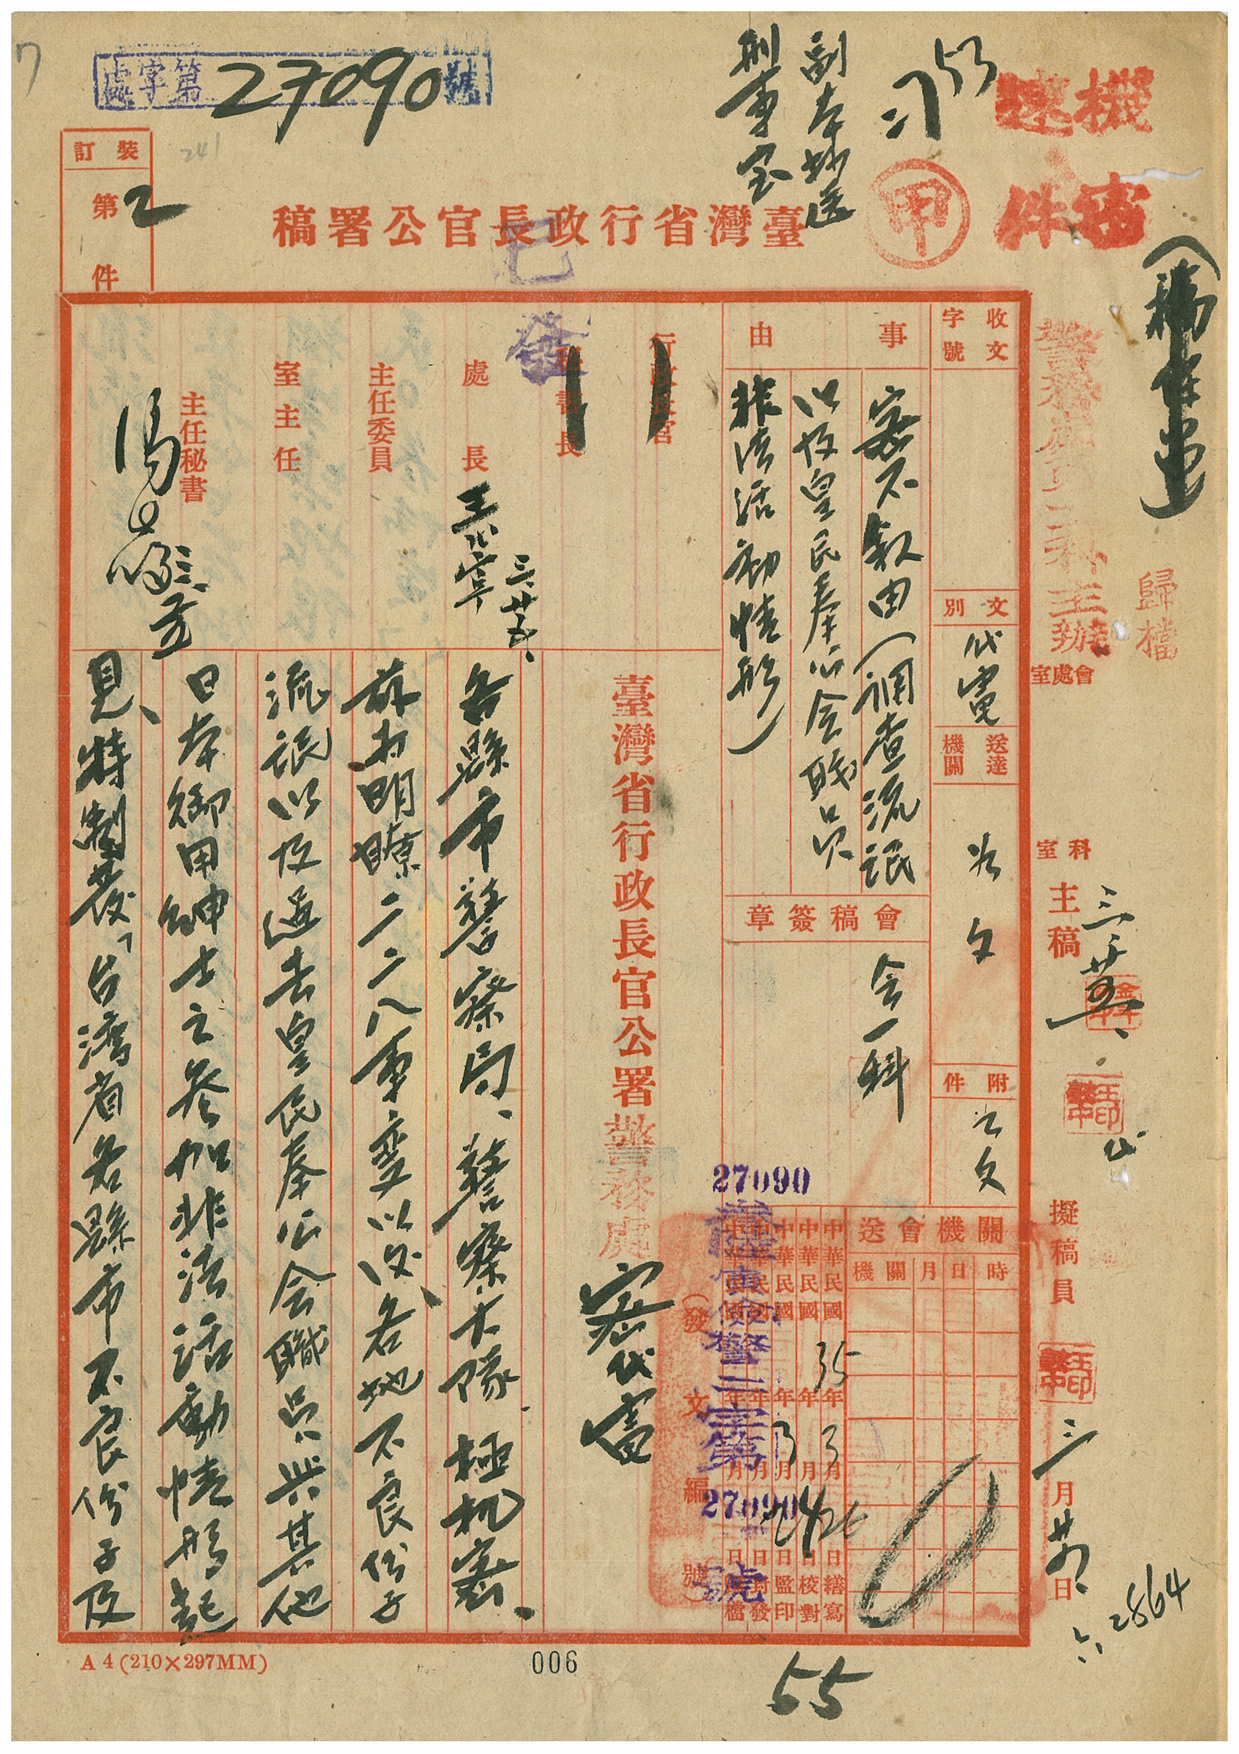 機密
速件
753
甲
副本抄送
刑事室
處字第27090號
7
241
裝訂
第2件
臺灣省行政長官公署稿
已發
歸檔
收文字號
文別
代電
送達機關
如文
附件
如文
事由
密不敘由(調查流氓
以及皇民奉公會職員
非法活動情形)
會稿簽章
會一科
行政長官
秘書長
處長
王心寧 三、廿五、
主任委員
室主任
主任秘書
會處室
科室
主稿
三、廿五、
擬稿員
三月廿五日
關機會送
時日月關機
中華民國35年3月26日繕寫
中華民國 年 月 日校對
中華民國 年3月 日監印
中華民國 年 月 日封發
中華民國 年 月 日歸檔
27090
(發文編號)
警二字第27090號
臺灣省行政長官公署警務處密代電
各縣市警察局、警察大隊、極机密、
茲為明瞭二二八事變以後、各地不良份子
流氓以及過去皇民奉公會職員與其他
日本御用紳士之參加非法活動情形起
見、特製發「台灣省各縣市不良份子及
六、2864
A4(210×297MM)
006
55